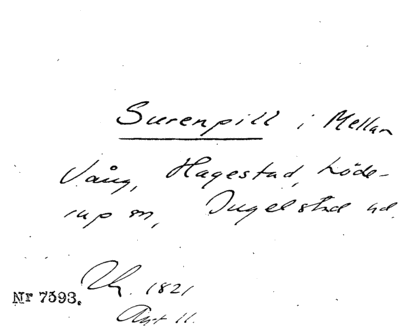 Surenpill i Mellan
Vång, Hagestad, Löde-
rup sn, Ingelstad hd.
1821
Nr 7593.
Akt 11.